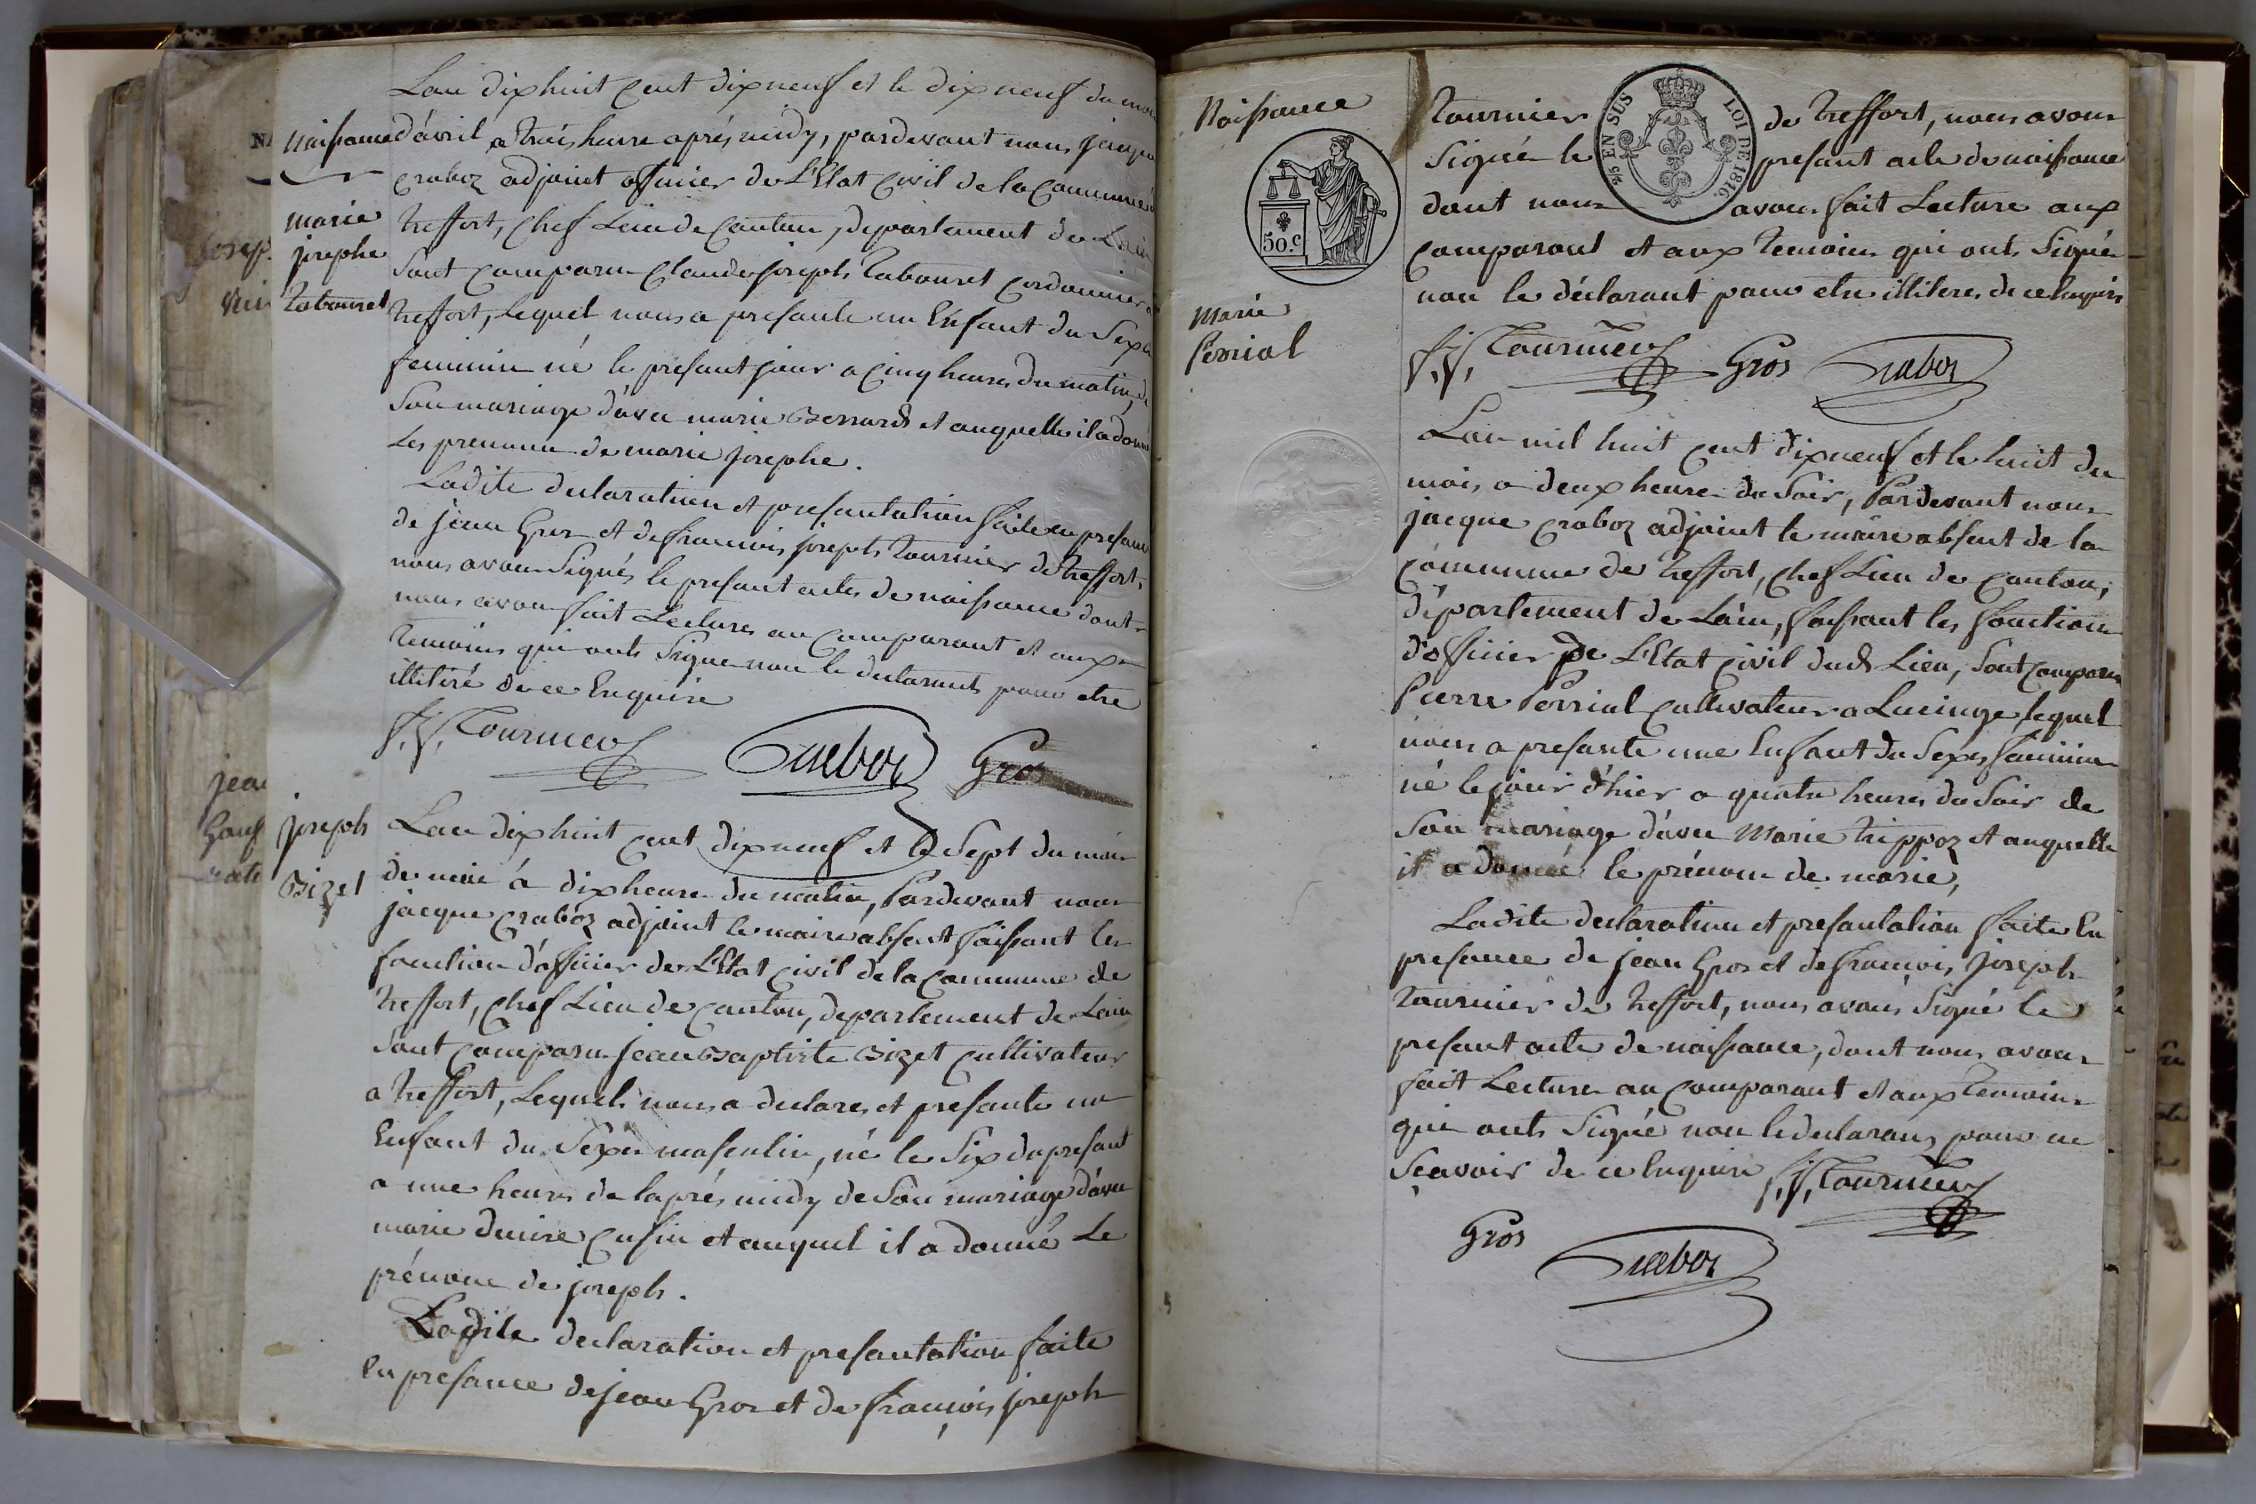 Naissance
marie
josephe
Tabouret
Lan dixhuit cent dixneuf et le dix neuf du mois
d'avril a trois heure aprés midy, pardevant nous jacque
craboz adjoint officier de L'Etat Civil de la Commune de
treffort, Chef Lieu de Canton, departement de L'ain
Sont comparu Claude joseph Tabouret cordonnier a
treffort, lequel nous a presanté un Enfant du Sexe
feminin né le presant jour a cinq heures du matin, de
Son mariage d'avec marie Bernard et auquelle il a donné
Les prenom de marie josephe.
Ladite declaration et presantation faite en presance
de jean Gros et de francois joseph Tournier de treffort,
nous avons Signés le presant acte de naissance dont
nous avons fait Lecture au comparant et aux
temoins qui onts Signe non le declarant pour etre
illitiré de ce Enquire
f. j. Tournier Craboz Gros
joseph
Bizet
Lan dixhuit cent dixneuf et le Sept du mois
de mai à dix heure du matin, Pardevant nous
jacque craboz adjoint le maire absent faissant les
fonction d'officier de L'Etat Civil de la Commune de
treffort, chef Lieu de canton, departement de Lain
Sont comparu jean Baptiste Bizet cultivateur
a treffort, Lequel nous a declaré et presanté un
Enfant du Sexe masculin, né le Six du presant
a une heure de laprés midy de Son mariage d'avec
marie denise et auquel il a donné Le
prénom de joseph.
Ladite declaration et presantation faite
En presance de jean Gros et de francois joseph
Naissance
50.c
2/5 EN SUS LOI DE 1816
Marie
Perrial
Tournier de treffort, nous avons
Signé le presant acte de naissance
dont nous avons fait Lecture aux
comparant et aux temoins qui onts Signé
non le déclarant pour etre illitere de ce Enquis
f. j. Tournier Gros Craboz
Lan mil huit cent dixneuf et le huit du
mois a deux heure du Soir, Pardevant nous
jacque craboz adjoint le maire absent de la
commune de treffort, chef Lieu de canton,
département de Lain, faissant les fonction
d'officier de L'Etat Civil dud Lieu, Sont comparu
Pierre Perrial cultivateur a Lucinge lequel
nous a presanté une Enfant du Sexe feminin
né le jour d'hier a quatre heures du Soir de
Son mariage d'avec Marie trippoz et auquelle
il a donné le prénom de marie,
Ladite declaration et presantation faite En
presance de jean Gros et de francois joseph
Tournier de treffort, nous avons Signé le
presant acte de naissance, dont nous avons
fait Lecture au comparant et aux temoins
qui onts Signé non le declarans pour ne
Scavoir de ce Enquire f. j. Tournier
Gros
Craboz